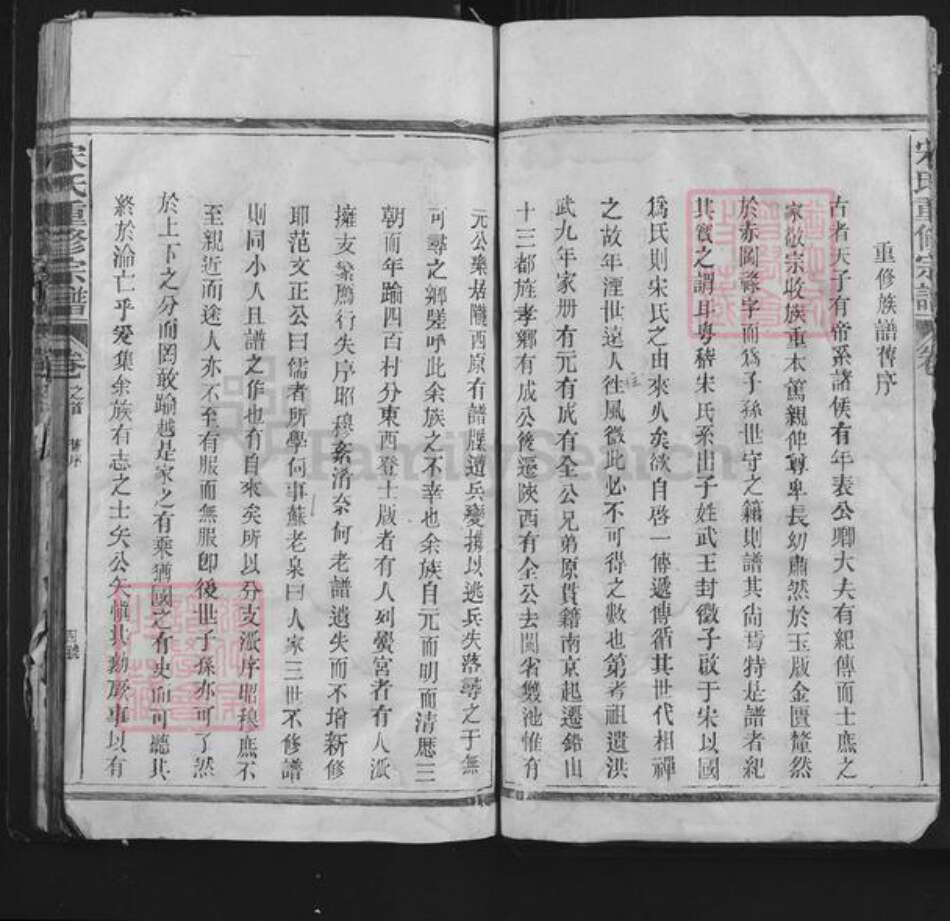 宋氏重修宗譜
卷
重修族譜舊序
古者天子有帝系諸侯有年表公卿大夫有紀傳而士庶之
家敬宗收族重本篤親仲尊卑長幼肅然於玉版金匱釐然
於赤圖綠字而為子孫世守之籍則譜其尚焉特是譜者紀
其實之謂耳粵稽宋氏系出子姓武王封微子啟于宋以國
為氏則宋氏之由來久矣欲自啓一傳遞傳循其世代相禪
之故年湮世遠人徃風微此必不可得之數也第考祖遺洪
武九年家册有元有成有全公兄弟原貫籍南京起遷鉛山
十三都旌孝鄉有成公後遷陝西有全公去閩省樊池惟有
元公樂居隴西原有譜牒遭兵變攜以逃兵失落尋之于無
可尋之鄉嗟呼此余族之不幸也余族自元而明而清歷三
朝而年踰四百村分東西登士版者有人列黌宮者有人派
擁支繁鴈行失序昭穆紊淆奈何老譜遺失而不增新修
即范文正公曰儒者所學何事蘇老泉曰人家三世不修譜
則同小人且譜之作也有自來矣所以分支派序昭穆庶不
至親近而途人亦不至有服而無服卽後世子孫亦可了然
於上下之分而罔敢踰越是家之有乘猶國之有史而可聽其
終於淪亡乎爰集余族有志之士矢公矢愼共勷厥事以有
宋氏重修宗譜
卷之首
舊序
FamilySearch